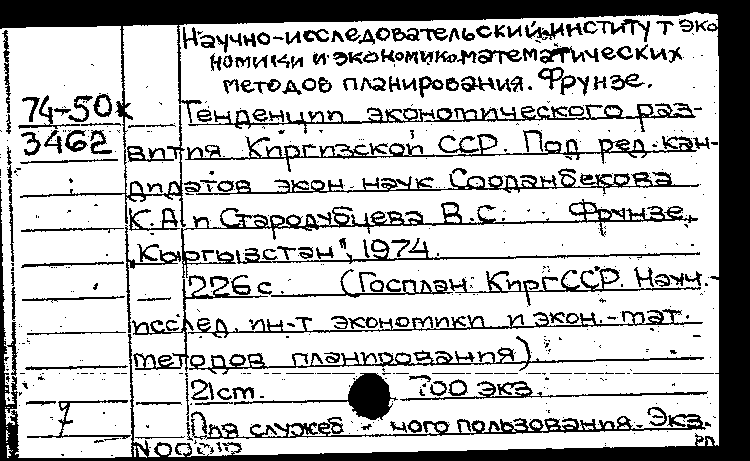 Научно-исследовательский институт эко
номики и экономико-математических
методов планирования. Фрунзе.
74-50к Тенденции экономического раз-
3462 вития Киргизской ССР. Под ред. кан-
дидатов экон. наук Сооданбекова
К.А. и Стародубцева В.С. Фрунзе,
"Кыргызстан", 1974.
226 с. (Госплан КиргССР. Науч.-
исслед. ин-т экономики и экон.-мат.
методов планирования).
21 ст. 700 экз.
7 Для служебного пользования. Экз.
N00010 рп